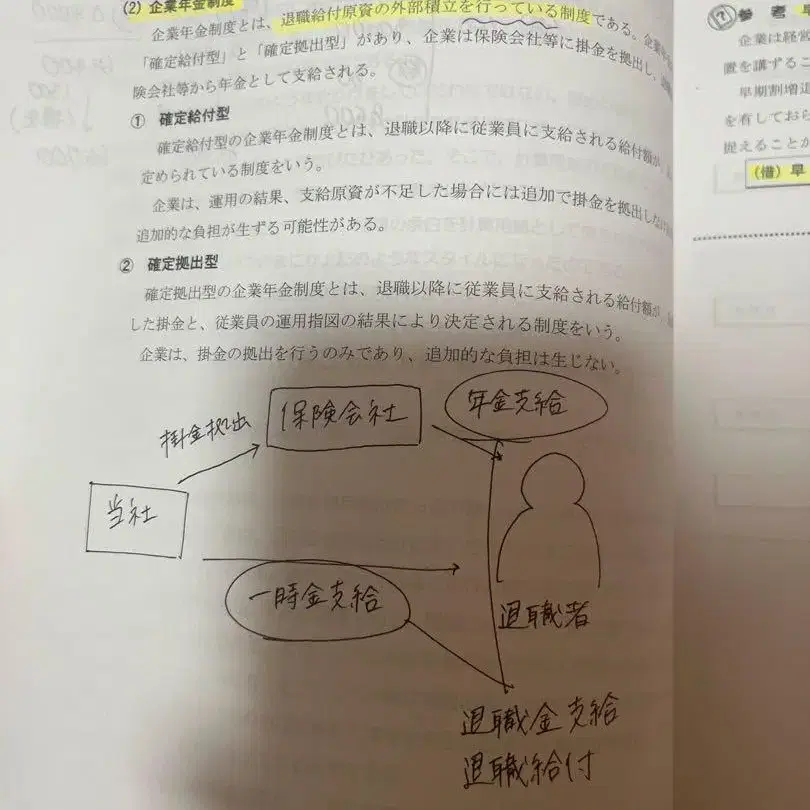 (2) 企業年金制度
企業年金制度とは、退職給付原資の外部積立を行っている制度である。企業年
「確定給付型」と「確定拠出型」があり、企業は保険会社等に掛金を拠出し、
険会社等から年金として支給される。
① 確定給付型
確定給付型の企業年金制度とは、退職以降に従業員に支給される給付額が
定められている制度をいう。
企業は、運用の結果、支給原資が不足した場合には追加で掛金を拠出し
追加的な負担が生ずる可能性がある。
② 確定拠出型
確定拠出型の企業年金制度とは、退職以降に従業員に支給される給付額が
した掛金と、従業員の運用指図の結果により決定される制度をいう。
企業は、掛金の拠出を行うのみであり、追加的な負担は生じない。
年金支給
保険会社
掛金拠出
当社
一時金支給
退職者
退職金支給
退職給付
⑦ 参考
企業は経営
置を講ずるこ
早期割増退
を有してお
捉えることが
(借) 早